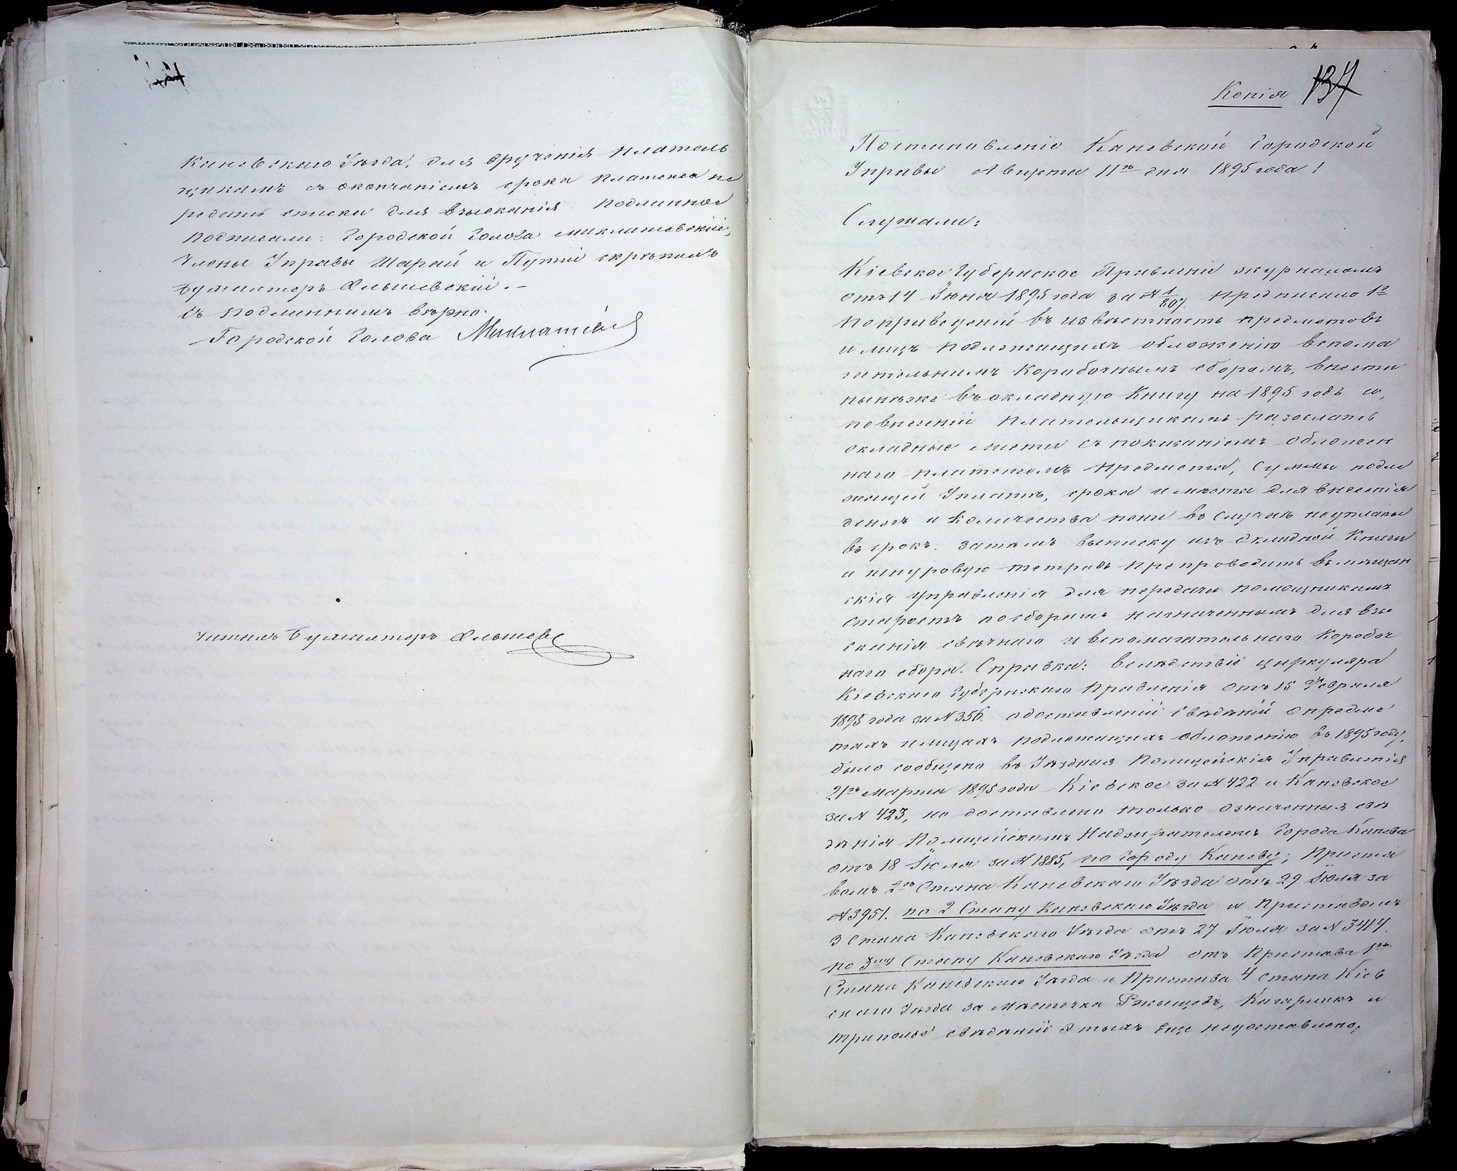 Каневскаго Уѣзда, для врученія плательщикамъ
щикамъ съ окончаніемъ срока платежа пе
редать списки для взысканія. Подлинное
подписали: Городской Голова Миклашевскій,
Члены Управы Шарай и Путій скрѣпилъ
Бухгалтеръ Ольшевскій. –
Съ подлиннымъ вѣрно:
Городской Голова
Читалъ Бухгалтеръ
Копія 137
Постановленіе Каневской Городской
Управы Августа 11го дня 1895 года!
Слушали:
Кіевское Губернское Правленіе журналомъ
отъ 14 Іюня 1895 года за № 1/807 предписало 1е
по приведеній въ извѣстность предметовъ
и лицъ подлежащихъ обложенію вспома
гательнымъ Коробочнымъ сборомъ, внести
нынѣже въ окладную Книгу на 1895 годъ и,
плательщикамъ разослать
окладные листы съ показаніемъ обложен
наго платежомъ предмета, суммы подле
жащей уплатѣ, срока и мѣста для внесенія
денегъ и количества пени въ случаѣ неуплаты
въ срокъ. Затемъ выписку изъ окладной Книги
и шнуровую тетрадь препроводить въ мѣщан
скія управленія для передачи помощникамъ
старостъ по сборамъ назначеннымъ для взы
сканія свѣчнаго и вспомагательнаго Коробоч
наго сбора. Справка: вслѣдствіе циркуляра
Кіевскаго Губернскаго Правленія отъ 15 Февраля
1895 года за № 356. о доставленій свѣдѣній о предме
тахъ и лицахъ подлежащихъ обложенію въ 1895 году,
было сообщено въ Уѣздныя Полицейскія Управленія
21го Марта 1895 года Кіевское за № 422 и Каневское
за № 423, но доставлено только означенныя свѣ
дѣнія Полицейскимъ Надзирателемъ Города Канева
отъ 18 Іюля за № 1885, по городу Каневу; Приста
вомъ 2го Стана Каневскаго Уѣзда отъ 29 Іюля за
№ 3951. по 2 Стану Каневскаго Уѣзда и Приставомъ
3 Стана Каневскаго Уѣзда отъ 27 Іюля за № 3414.
по 3му Стану Каневскаго Уѣзда отъ Пристава 1го
Стана Каневскаго Уѣзда и Пристава 4 Стана Кіев
скаго Уѣзда за Мѣстечка Ржищевъ, Кагарлыкъ и
Триполье свѣдѣній этихъ еще недоставлено,